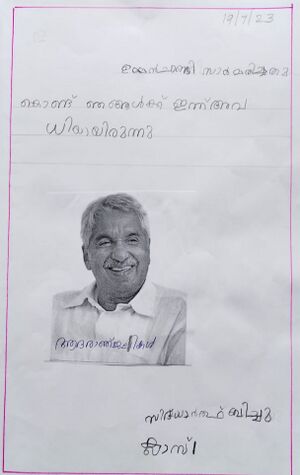 19/7/23
ഉമ്മൻചാണ്ടി സാർ മരിച്ചതു
കൊണ്ട് ഞങ്ങൾക്ക് ഇന്ന് അവ
ധിയായിരുന്നു
ആദരാഞ്ജലികൾ
സിദ്ധാർത്ഥ് ബിച്ചു
ക്ലാസ് 1